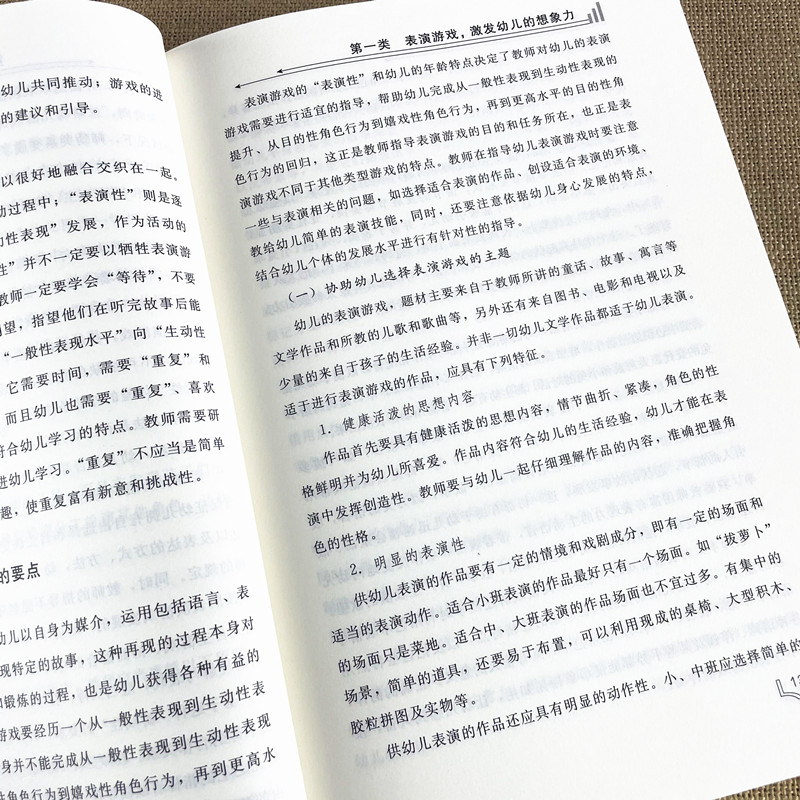 幼儿共同推动；游戏的进
的建议和引导。
以很好地融合交织在一起。
动过程中，“表演性”则是逐
动性表现”发展，作为活动的
性”并不一定要以牺牲表演游
教师一定要学会“等待”，不要
期望，指望他们在听完故事后能
“一般性表现水平”向“生动性
它需要时间，需要“重复”和
而且幼儿也需要“重复”、喜欢
符合幼儿学习的特点。教师需要研
进幼儿学习。“重复”不应当是简单
趣，使重复富有新意和挑战性。
的要点
幼儿以自身为媒介，运用包括语言、表
现特定的故事，这种再现的过程本身对
和锻炼的过程，也是幼儿获得各种有益的
游戏要经历一个从一般性表现到生动性表
身并不能完成从一般性表现到生动性表现
角色行为到嬉戏性角色行为，再到更高水
第一类 表演游戏，激发幼儿的想象力
表演游戏的“表演性”和幼儿的年龄特点决定了教师对幼儿的表演
游戏需要进行适宜的指导，帮助幼儿完成从一般性表现到生动性表现的
提升、从目的性角色行为到嬉戏性角色行为，再到更高水平的目的性角
色行为的回归，这正是教师指导表演游戏的目的和任务所在，也正是表
演游戏不同于其他类型游戏的特点。教师在指导幼儿表演游戏时要注意
一些与表演相关的问题，如选择适合表演的作品、创设适合表演的环境、
教给幼儿简单的表演技能，同时，还要注意依据幼儿身心发展的特点，
结合幼儿个体的发展水平进行有针对性的指导。
（一）协助幼儿选择表演游戏的主题
幼儿的表演游戏，题材主要来自于教师所讲的童话、故事、寓言等
文学作品和所教的儿歌和歌曲等，另外还有来自图书、电影和电视以及
少量的来自于孩子的生活经验。并非一切幼儿文学作品都适于幼儿表演。
适于进行表演游戏的作品，应具有下列特征。
1．健康活泼的思想内容
作品首先要具有健康活泼的思想内容，情节曲折、紧凑，角色的性
格鲜明并为幼儿所喜爱。作品内容符合幼儿的生活经验，幼儿才能在表
演中发挥创造性。教师要与幼儿一起仔细理解作品的内容，准确把握角
色的性格。
2．明显的表演性
供幼儿表演的作品要有一定的情境和戏剧成分，即有一定的场面和
适当的表演动作。适合小班表演的作品最好只有一个场面。如“拔萝卜”
的场面只是菜地。适合中、大班表演的作品场面也不宜过多。有集中的
场景，简单的道具，还要易于布置，可以利用现成的桌椅、大型积木、
胶粒拼图及实物等。
供幼儿表演的作品还应具有明显的动作性。小、中班应选择简单的